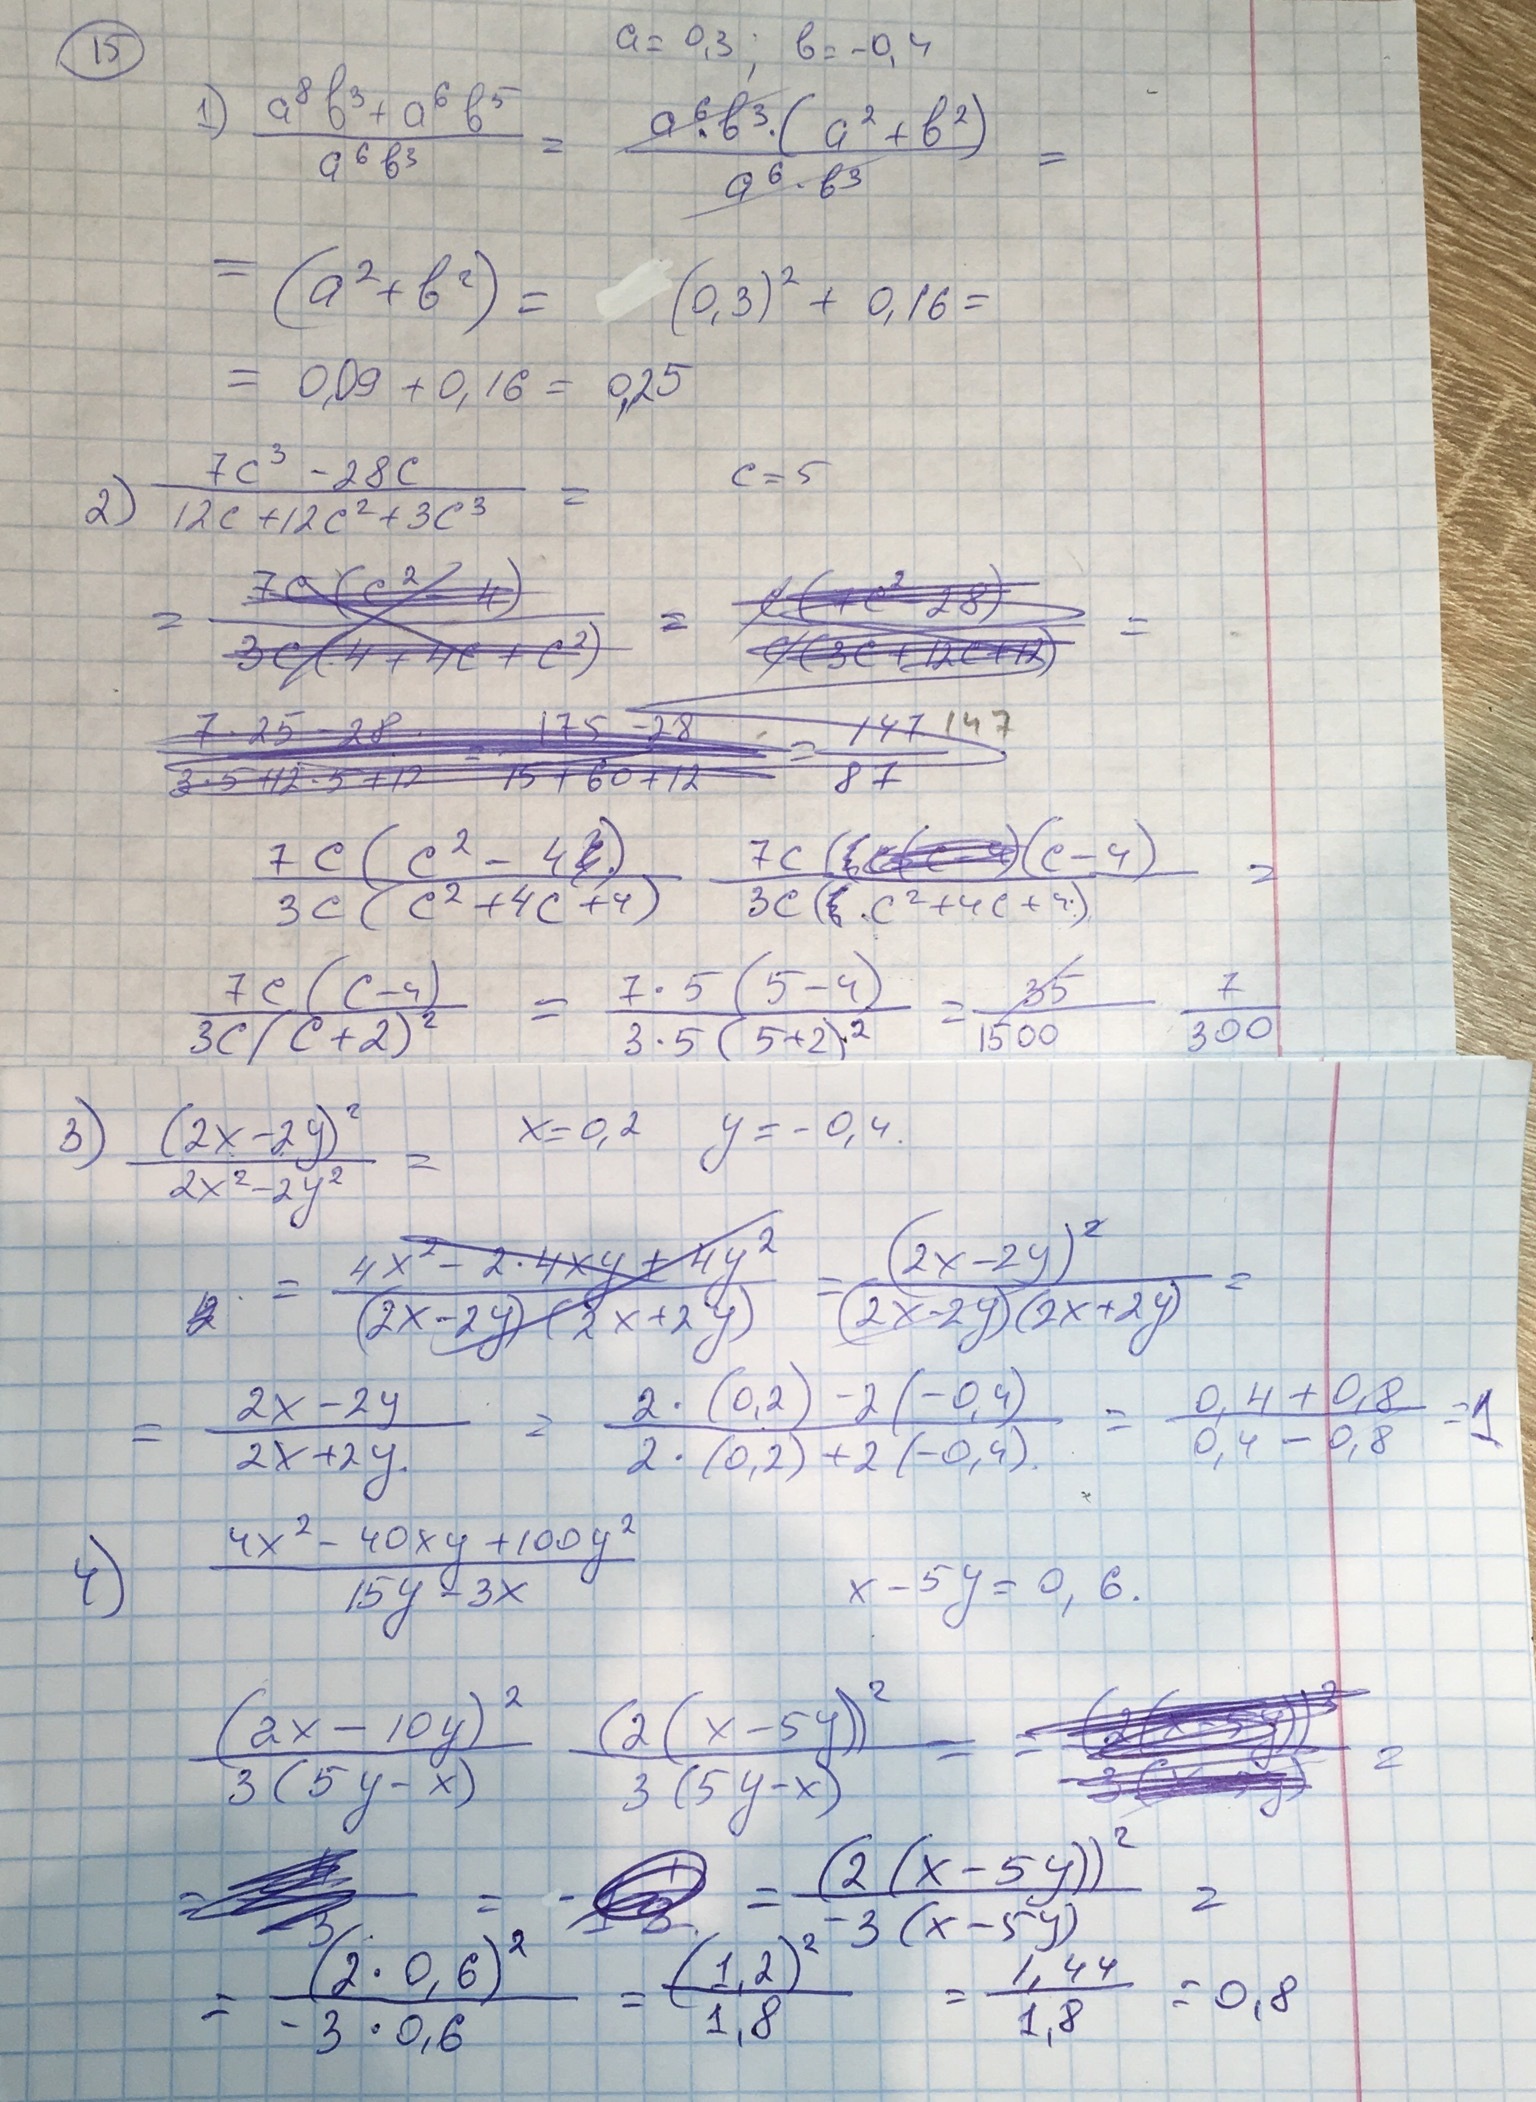 15
a = 0,3; b = -0,4
1) (a⁸b³ + a⁶b⁵)/(a⁶b³) = (a⁶·b³·(a² + b²))/(a⁶·b³) =
= (a² + b²) = (0,3)² + 0,16 =
= 0,09 + 0,16 = 0,25
2) (7c³ - 28c)/(12c + 12c² + 3c³) = c = 5
= (7c(c² - 4))/(3c(4 + 4c + c²)) = (c(7c² - 28))/(c(3c + 12c + 12)) =
(7·25 - 28)/(3·5 + 12·5 + 12) = (175 - 28)/(15 + 60 + 12) = 147/87 147
(7c(c² - 4))/(3c(c² + 4c + 4)) (7c(c - 4))/(3c(c² + 4c + 4)) =
(7c(c - 4))/(3c(c + 2)²) = (7·5(5 - 4))/(3·5(5 + 2)²) = 35/1500 7/300
3) (2x - 2y)²/(2x² - 2y²) = x = 0,2 y = -0,4.
= (4x² - 2·4xy + 4y²)/((2x - 2y)(2x + 2y)) = (2x - 2y)²/((2x - 2y)(2x + 2y)) =
= (2x - 2y)/(2x + 2y) = (2·(0,2) - 2(-0,4))/(2·(0,2) + 2(-0,4)) = (0,4 + 0,8)/(0,4 - 0,8) = 1
4) (4x² - 40xy + 100y²)/(15y - 3x) x - 5y = 0,6.
(2x - 10y)²/(3(5y - x)) (2(x - 5y))²/(3(5y - x)) = = (2(x - 5y))²/(-3(x - 5y)) =
= = = (2(x - 5y))²/(-3(x - 5y)) =
= (2·0,6)²/(-3·0,6) = (1,2)²/1,8 = 1,44/1,8 = 0,8